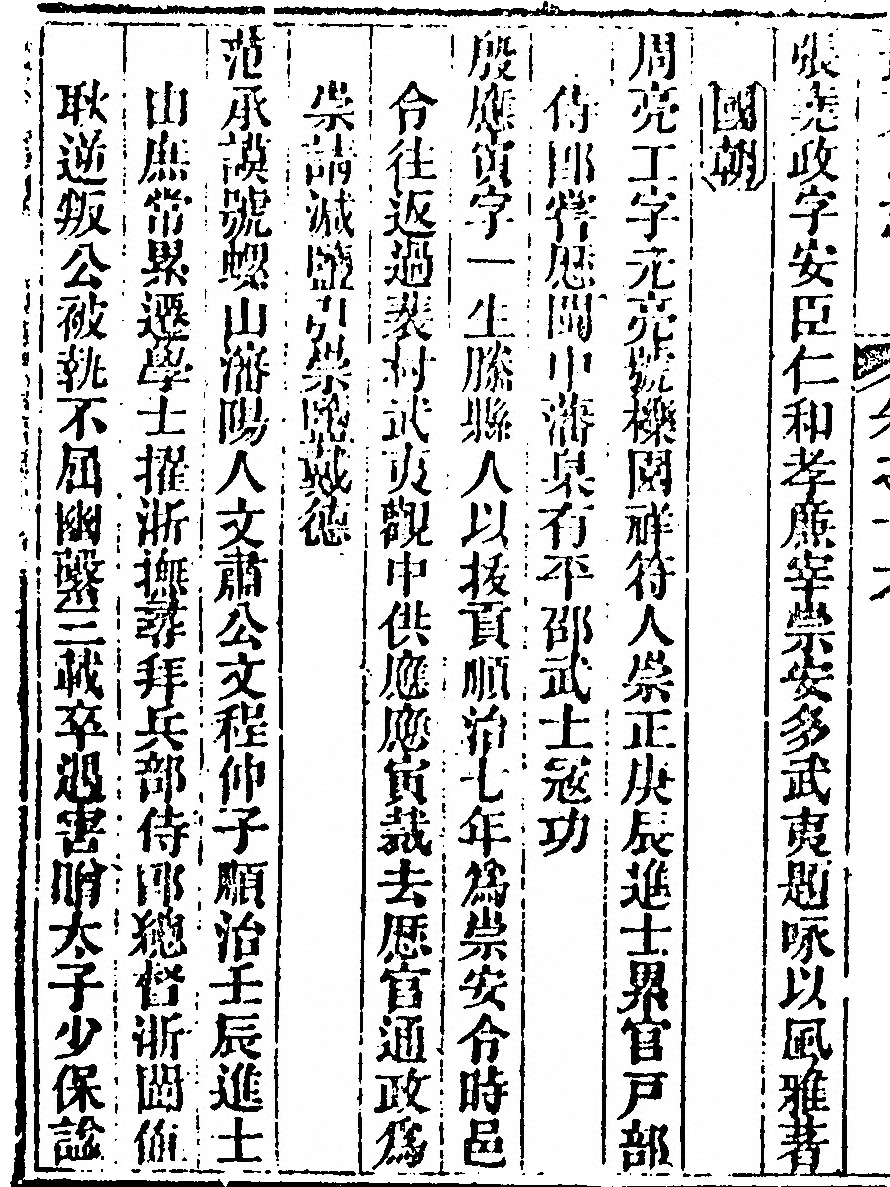 張堯政字安臣仁和孝廉宰崇安多武夷題咏以風雅著
國朝
周亮工字元亮號櫟園祥符人崇正庚辰進士累官戸部
侍郎嘗歷閩中藩臬有平邵武土宼功
殷應寅字一生滕縣人以拔貢順治七年爲崇安令時邑
令往返過裴村武夷觀中供應應寅裁去歷官通政爲
崇請減鹽引崇魨戴德
范承謨號螺山瀋陽人文肅公文程仲子順治壬辰進士
由庶常累遷學士擢浙撫尋拜兵部侍郎總督浙閩値
耿逆叛公被執不屈幽繫三載卒遇害贈太子少保諡